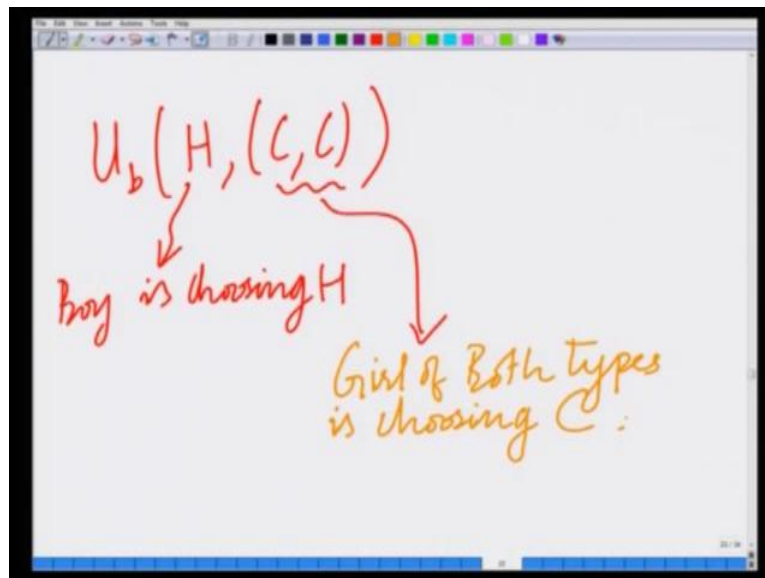 File Edit View Insert Actions Tools Help
U_b(H,(C,C))
Boy is choosing H
Girl of Both Types
is choosing C.